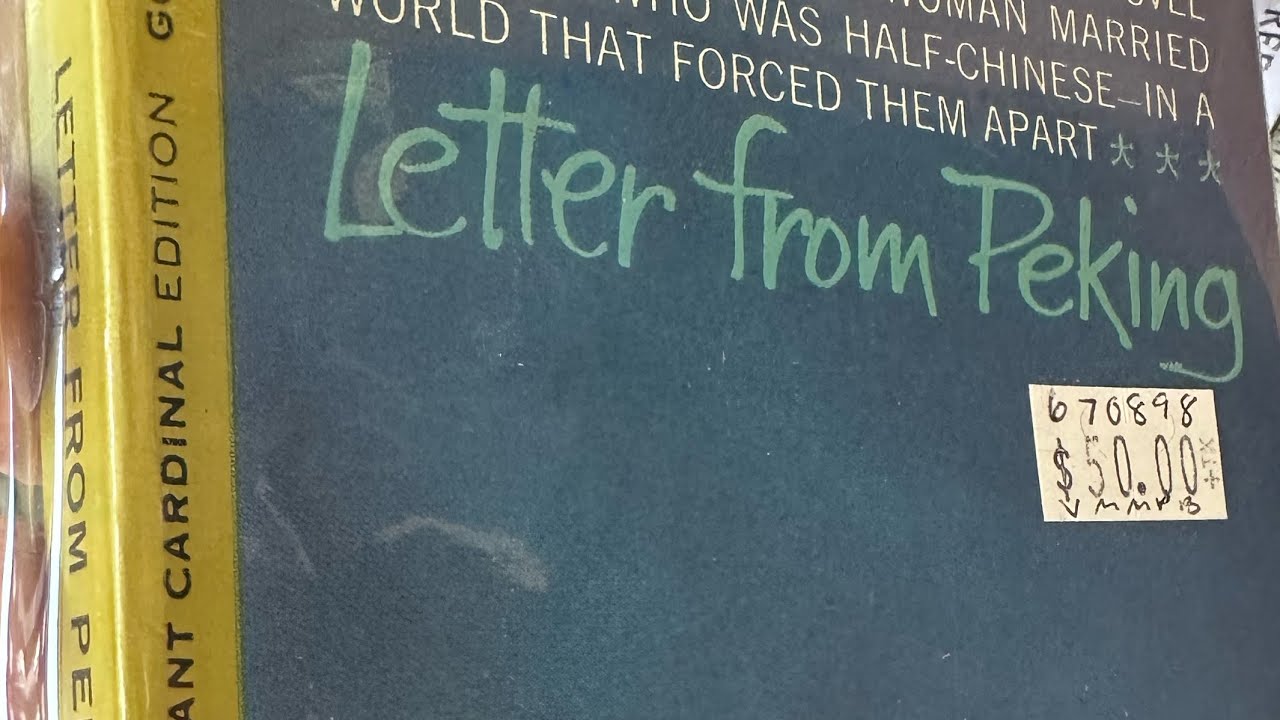 WOMAN MARRIED
WHO WAS HALF-CHINESE—IN A
WORLD THAT FORCED THEM APART ★ ★ ★
Letter from Peking
670898
$50.00 +TX
VMMPB
LETTER FROM PE
ANT CARDINAL EDITION